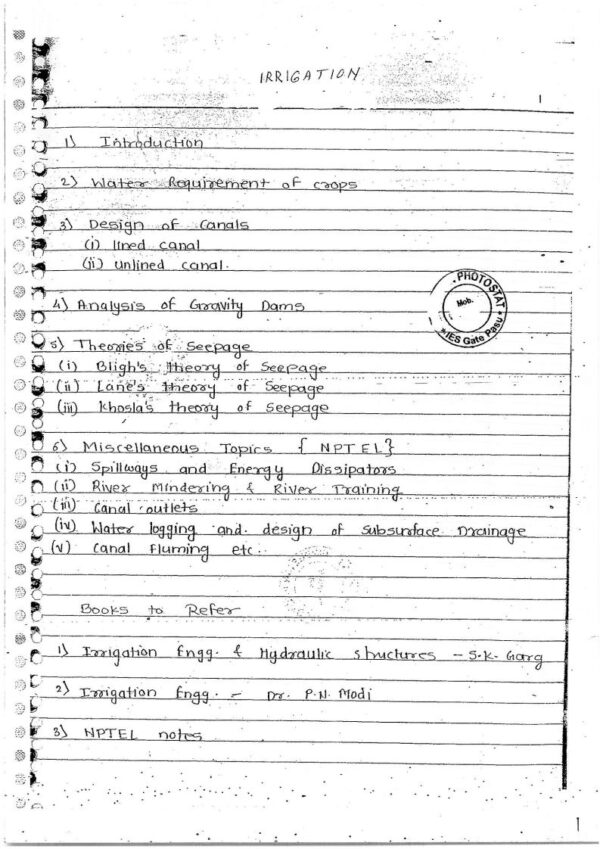 IRRIGATION
1) Introduction
2) Water Requirement of crops
3) Design of Canals
(i) lined canal
(ii) unlined canal.
4) Analysis of Gravity Dams
PHOTOSTAT
Mob.
*IES Gate Pasu*
5) Theories of Seepage
(i) Bligh's theory of Seepage
(ii) Lane's theory of Seepage
(iii) Khosla's theory of Seepage
6) Miscellaneous Topics { NPTEL}
(i) Spillways and Energy Dissipators
(ii) River Mindering & River Training
(iii) Canal outlets
(iv) Water logging and design of Subsurface Drainage
(v) Canal Fluming etc..
Books to Refer
1) Irrigation Engg. & Hydraulic structures - S.K. Garg
2) Irrigation Engg. - Dr. P.N. Modi
3) NPTEL notes
1